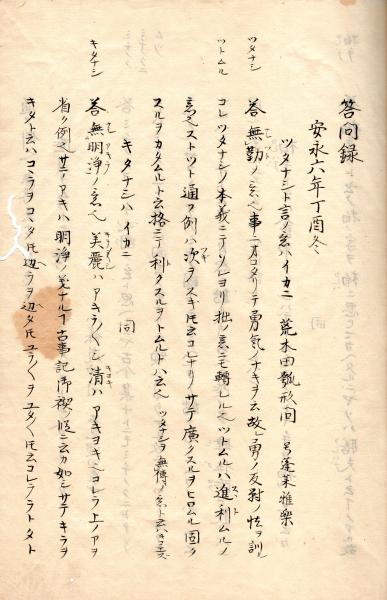 答問録
安永六年丁酉冬
ツタナシト言ノ意ハイカニ 荒木田瓠形問 号蓬莱雅楽
ツタナシ
ツトムル
答 無勤ノ意ニテ事ニオコタリテ勇気ノナキヲ云故ニ勇ノ反対ノ怯ヲ訓ル
コレツタナシノ本義ニテソレヨリ拙ノ意ニモ轉レルニヤツトムルハ進利ムルノ
意ニテストツト通フ例ハ次ヲスキ氏云コレナリサテ廣クスルヲヒロムル固ク
スルヲカタムルト云格ニテ利クスルヲトムルトハ云
キタナシハイカニ 同
キタナシ
答 無明浄ノ意ニテ美麗ハアキラ清ハアキヨキニテコレラ上ノアヲ
省ク例ニテサテアキハ明浄ノ美ナルコト古事記御禊ノ段ニ云カ如シサテキラヲ
キタト云ハコヽラヲコヽタ氏辺ラヲ辺タ氏ユラヲユタ氏云コレテラトタト